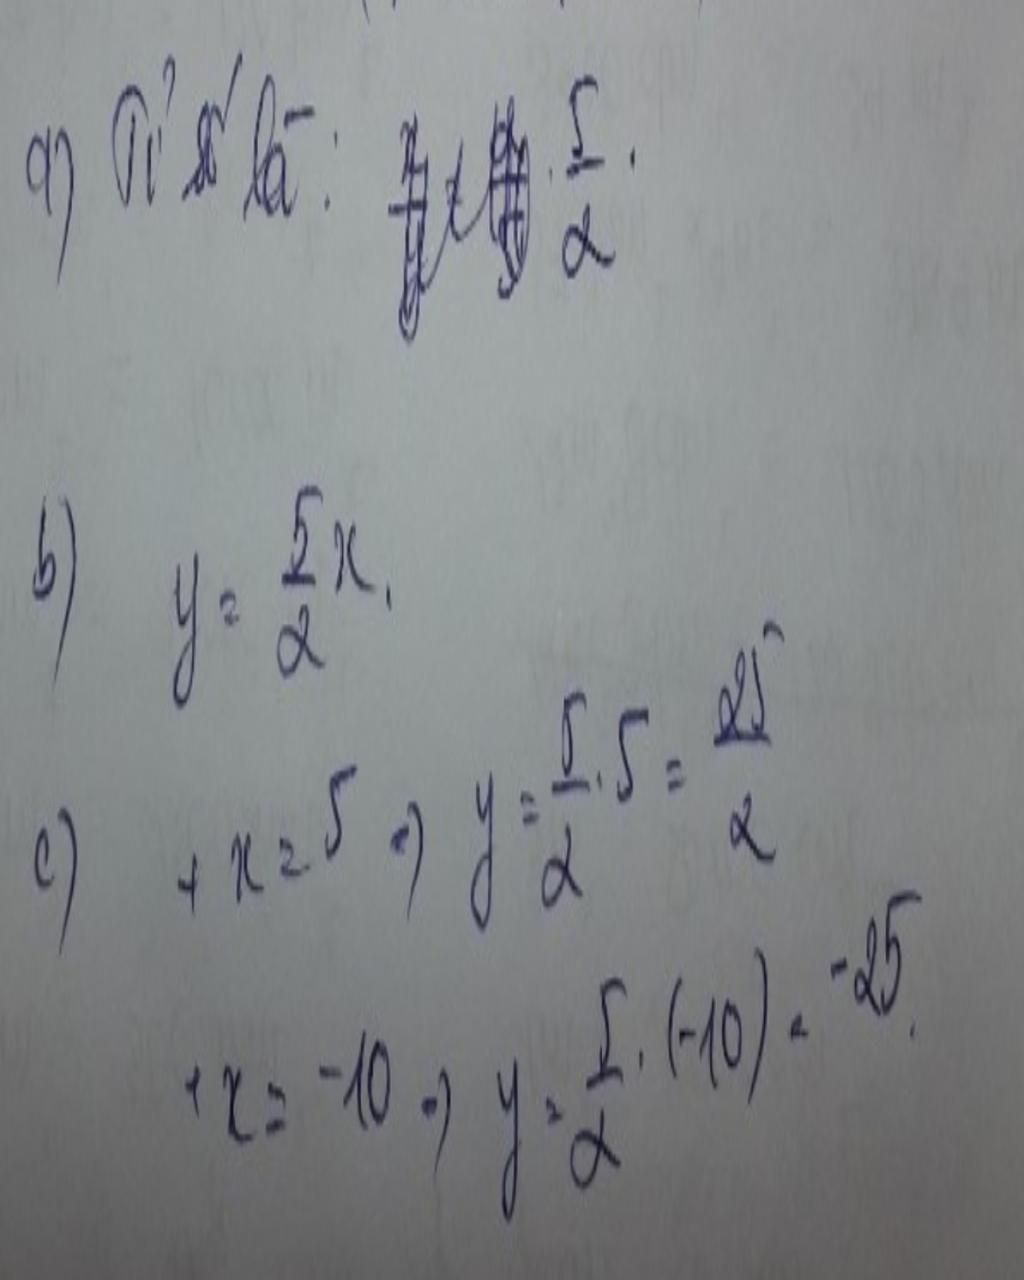 a) Tỉ số là: 5/2.
b) y = 5/2 x.
c) + x = 5 => y = 5/2 . 5 = 25/2
+ x = -10 => y = 5/2 . (-10) = -25.